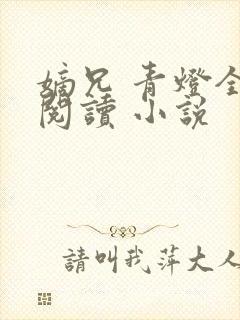 嫡兄 青燈全
閱讀 小說
請叫我萍大人